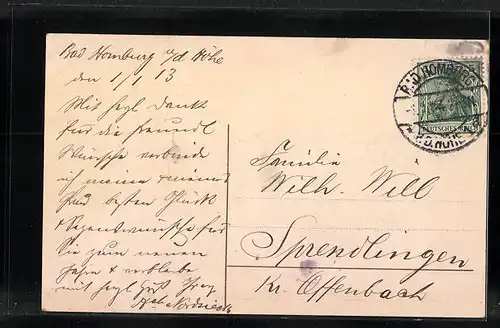 Bad Homburg v/d Höhe
den 1/1 13
Mit herzl Dank
für die freundl
Wünsche verbinde
ich meine &
besten Glück
& Segenswünsche für
Sie zum neuen
Jahre & verbleibe
mit herzl Gruß
BAD HOMBURG
DEUTSCHES REICH
* v. d. HÖHE
Familie
Wilh. Will
Sprendlingen
Kr. Offenbach